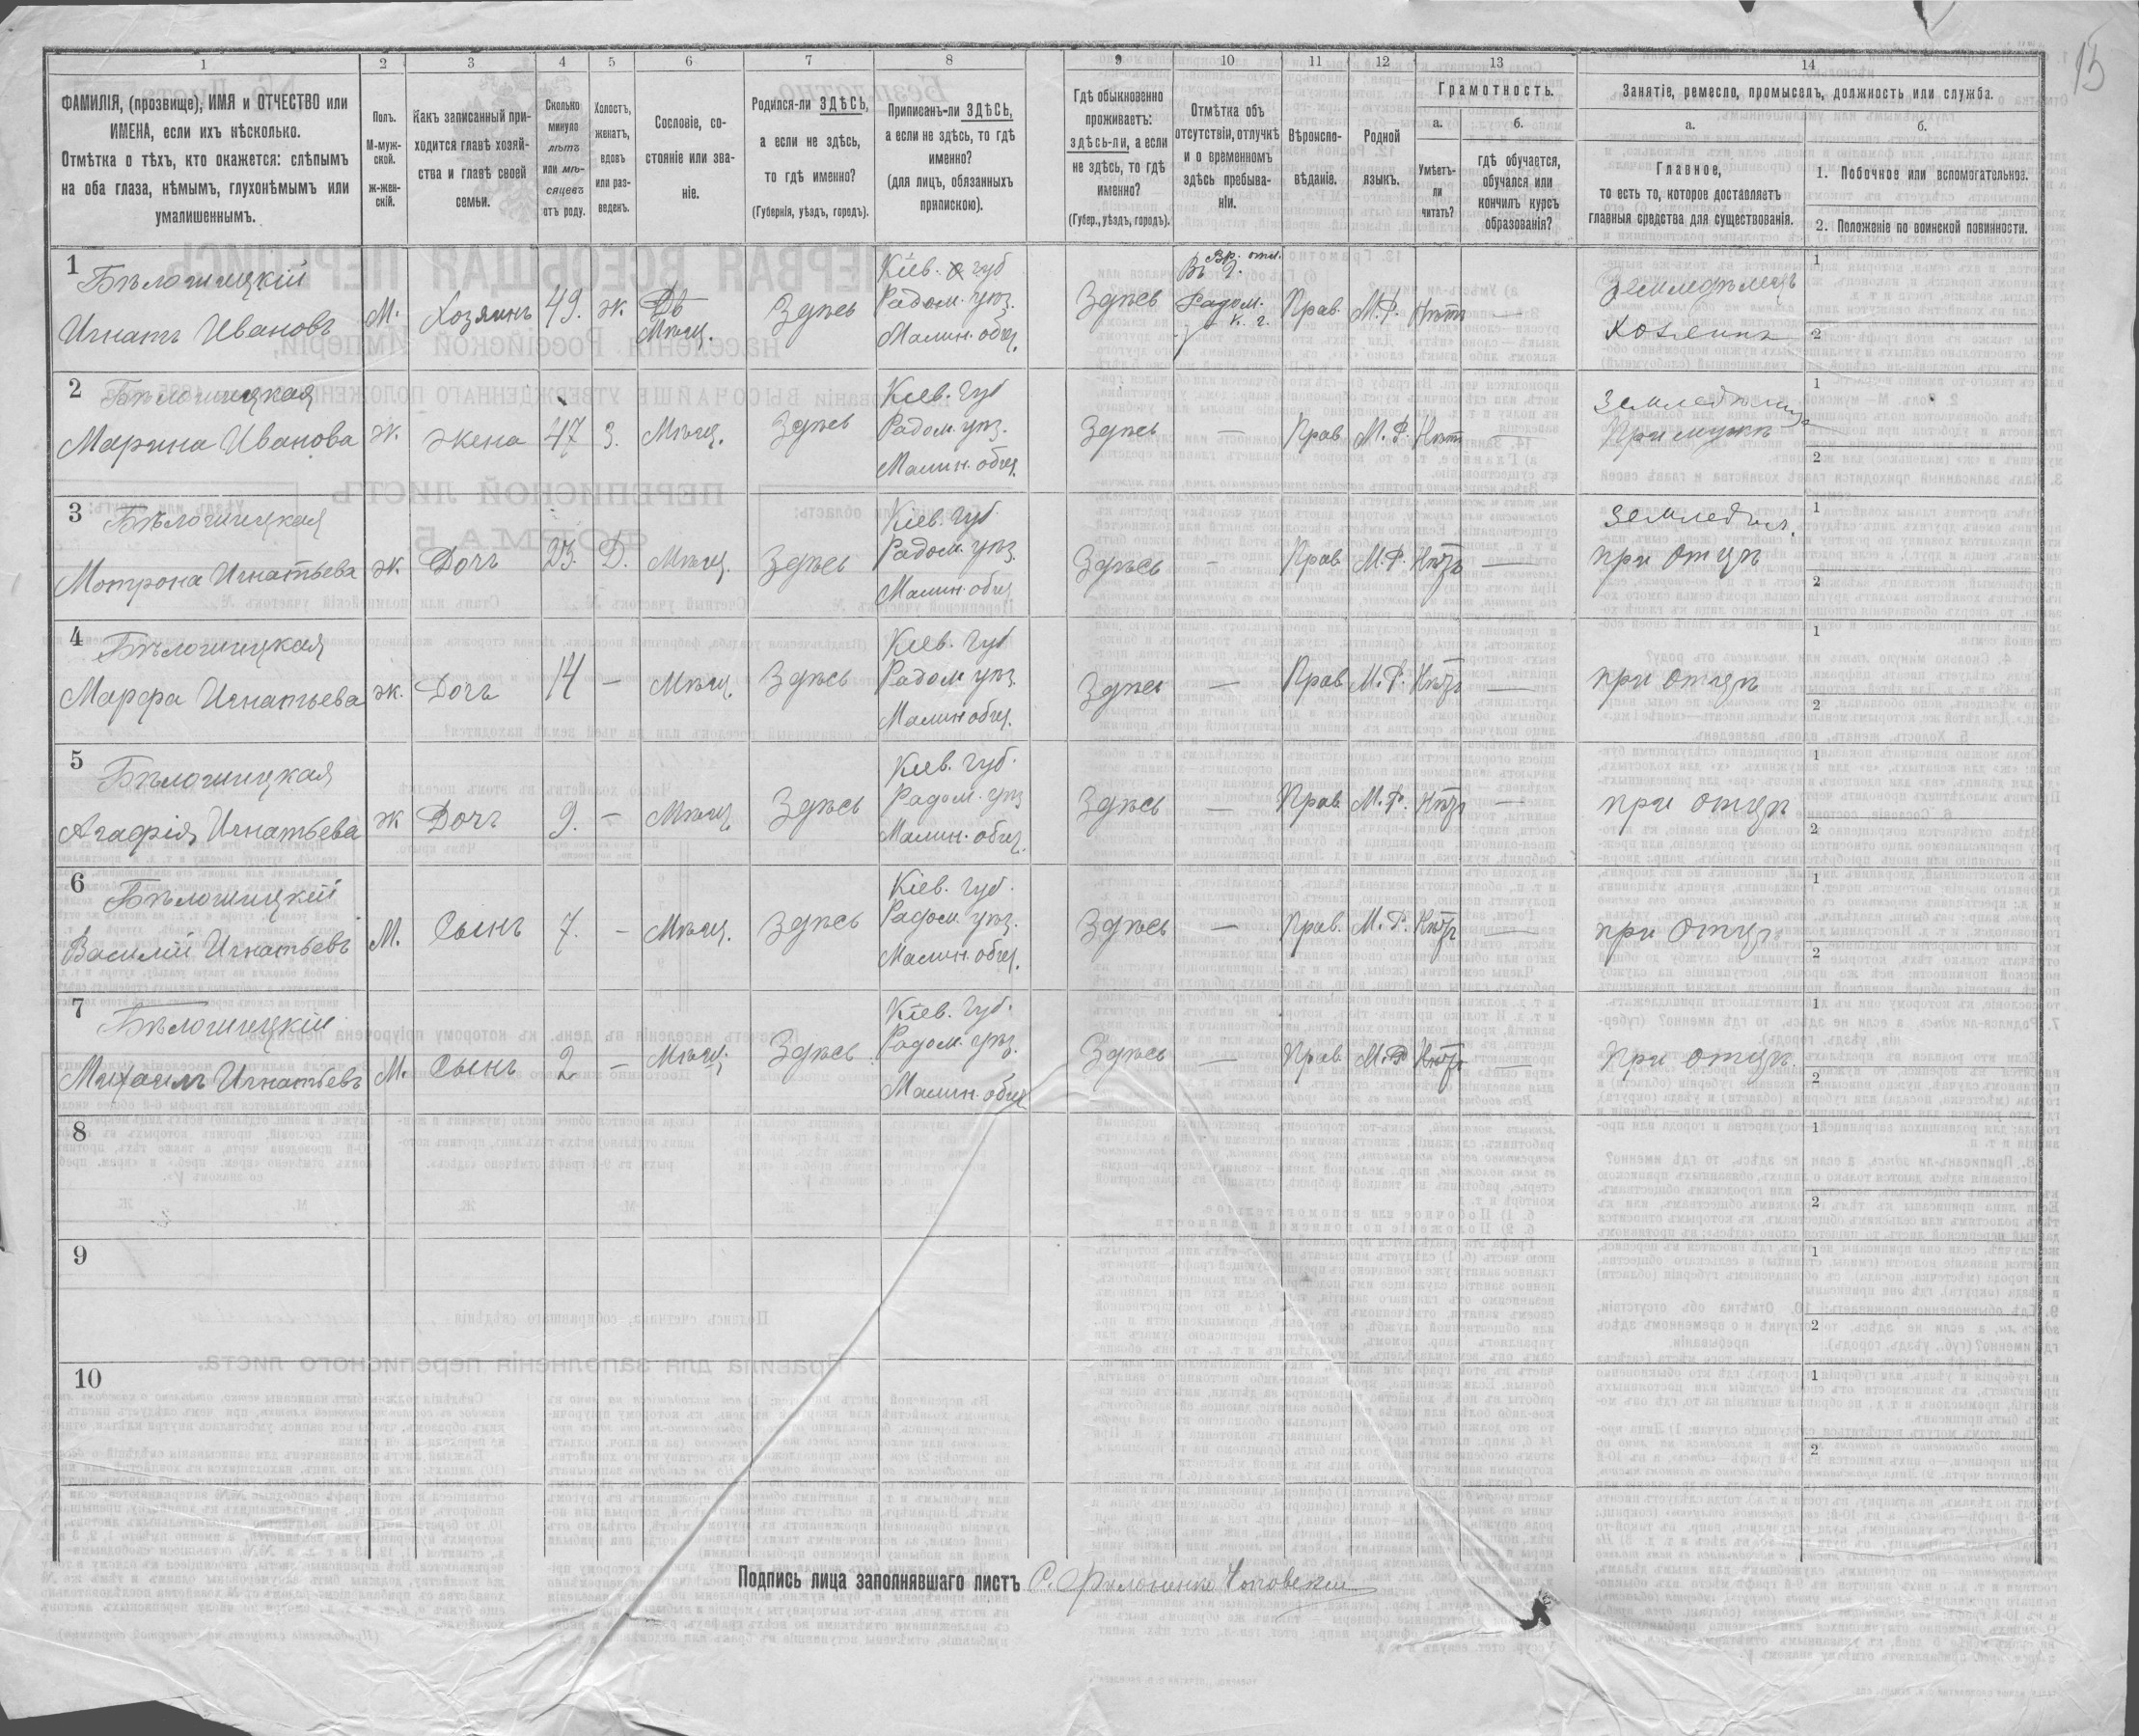 15
1 2 3 4 5 6 7 8 9 10 11 12 13 14
ФАМИЛІЯ, (прозвище), ИМЯ и ОТЧЕСТВО или
ИМЕНА, если ихъ нѣсколько.
Отмѣтка о тѣхъ, кто окажется: слѣпымъ
на оба глаза, нѣмымъ, глухонѣмымъ или
умалишеннымъ.
Полъ.
М-муж-
ской.
ж-жен-
скій.
Какъ записанный при-
ходится главѣ хозяй-
ства и главѣ своей
семьи.
Сколько
минуло
лѣтъ
или мѣ-
сяцевъ
отъ роду.
Холостъ,
женатъ,
вдовъ
или раз-
веденъ.
Сословіе, со-
стояніе или зва-
ніе.
Родился-ли ЗДѢСЬ,
а если не здѣсь,
то гдѣ именно?
(Губернія, уѣздъ, городъ).
Приписанъ-ли ЗДѢСЬ,
а если не здѣсь, то гдѣ
именно?
(для лицъ, обязанныхъ
припискою).
Гдѣ обыкновенно
проживаетъ:
здѣсь-ли, а если
не здѣсь, то гдѣ
именно?
(Губер., уѣздъ, городъ).
Отмѣтка объ
отсутствіи, отлучкѣ
и о временномъ
здѣсь пребыва-
ніи.
Вѣроиспо-
вѣданіе.
Родной
языкъ.
Грамотность.
а.
Умѣетъ-
ли
читать?
б.
гдѣ обучается,
обучался или
кончилъ курсъ
образованія?
Занятіе, ремесло, промыселъ, должность или служба.
а.
Главное,
то есть то, которое доставляетъ
главныя средства для существованія.
б.
1. Побочное или вспомогательное.
2. Положеніе по воинской повинности.
1
Бѣлошицкій
Игнатъ Ивановъ
М.
Хозяинъ
49.
ж.
Мѣщ.
Здѣсь
Кіев. губ
Радом. уѣз.
Малин. общ.
Здѣсь
Вр. отл.
Въ г.
Радом.
К. г.
Прав.
М.Р.
Нѣтъ
—
земледѣлецъ
хозяинъ
1
2
2
Бѣлошицкая
Марина Иванова
ж.
жена
47
З.
Мѣщ.
Здѣсь
Кіев. Губ
Радом. уѣз.
Малин. общ.
Здѣсь
—
Прав
М. Р.
Нѣтъ
При мужѣ
1
2
3
Бѣлошицкая
Мотрона Игнатьева
ж.
Дочь
23.
Д.
Мѣщ.
Здѣсь
Кіев. Губ.
Радом. уѣз
Малин. общ
Здѣсь
-
Прав
М.Р.
Нѣтъ
—
Земледѣл.
при Отцѣ
1
2
4
Бѣлошицкая
Марфа Игнатьева
ж.
Дочь
14
—
Мѣщ.
Здѣсь
Кіев. Губ
Радом уѣз.
Малин общ.
Здѣсь
—
Прав
М.Р.
Нѣтъ
—
при отцѣ
1
2
5
Бѣлошицкая
Агафія Игнатьева
ж
Дочь
9.
—
Мѣщ.
Здѣсь
Кіев. Губ.
Радом. уѣз
Малин. общ.
Здѣсь
—
Прав.
М.Р.
Нѣтъ
—
при отцѣ
1
2
6
Бѣлошицкій
Василій Игнатьевъ
М.
Сынъ
7.
—
Мѣщ.
Здѣсь
Кіев. Губ.
Радом уѣз.
Малин. общ.
Здѣсь
—
Прав.
М.Р.
Нѣтъ
—
при Отцѣ
1
2
7
Бѣлошицкій
Михаилъ Игнатьевъ
М.
Сынъ
2
—
Мѣщ.
Здѣсь
Кіев. Губ.
Радом. уѣз.
Малин. общ
Здѣсь
—
Прав
М.Р
Нѣтъ
—
При отцѣ
1
2
8
1
2
9
1
2
10
1
2
Подпись лица заполнявшаго листъ С.